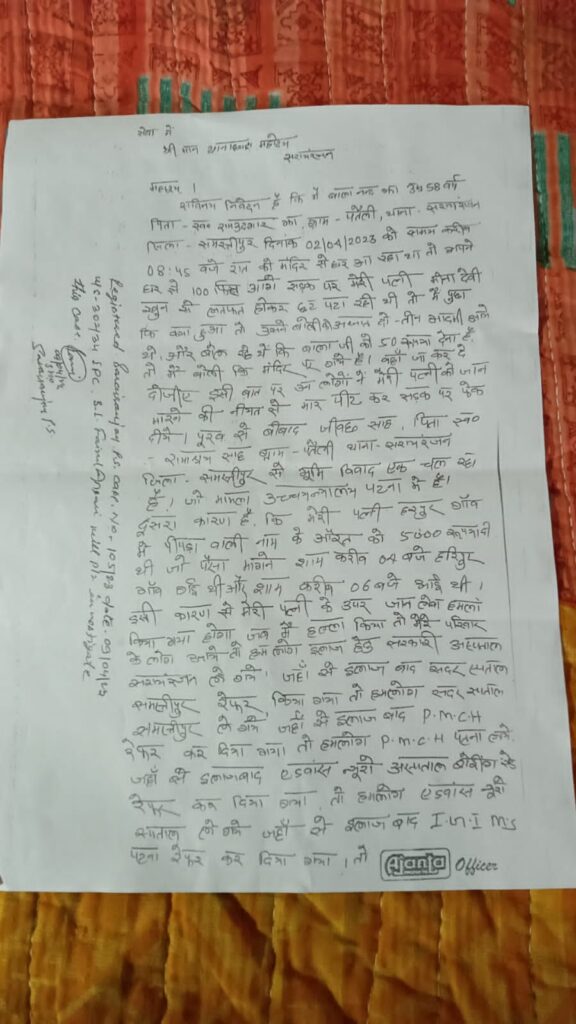 सेवा में
श्रीमान थानाध्यक्ष महोदय
सरायरंजन
महाशय ।
सविनय निवेदन है कि मैं बाला नन्द झा उम्र 58 वर्ष
पिता - स्व० झा, ग्राम - पतैली, थाना - सरायरंजन
जिला - समस्तीपुर दिनांक 02/04/2023 को समय करीब
08:45 बजे रात को मंदिर से घर आ रहा था तो अपने
घर से 100 आगे सड़क पर मेरी पत्नी मीना देवी
खुन से लतफत होकर छट पटा रही थी तो मैं पुछा
कि क्या हुआ तो दो - तीन आदमी आये
थे। और बोल रहे थे कि बाला जी को 50 रूपया देना है
तो मैंने बोली कि मंदिर पर गये है। वहाँ जा कर दे
दीजीए इसी बात पर उन लोगों ने मेरी पत्नी को जान
मारने की नीयत से मार पीट कर सड़क पर फेक
दीये। पूरब से बीबाद साह, पिता स्व०
साह ग्राम - पतैली थाना - सरायरंजन
जिला - समस्तीपुर से भूमि विवाद एक चल रहा
है। जो मामला उच्च न्यायालय पटना में है।
दूसरा कारण है, कि मेरी पत्नी हरिपुर गाँव
वाली नाम के औरत को 5000 रूपया दी
थी जो पैसा मांगने शाम करीब 04 बजे हरिपुर
गाँव गई थी और शाम करीब 06 बजे आई थी।
इसी कारण से मेरी पत्नी के उपर जान लेवा हमला
किया गया होगा जब मैं हल्ला किया तो मेरे परिवार
के लोग आये तो हमलोग इलाज हेतु सरकारी अस्पताल
सरायरंजन ले गये। जहाँ से इलाज बाद सदर स्पताल
समस्तीपुर रेफर किया गया तो हमलोग सदर स्पताल
समस्तीपुर ले गये जहाँ से इलाज बाद P.M.C.H
रेफर कर दिया गया तो हमलोग P.M.C.H पटना लाये।
जहाँ से इलाज बाद एडवांस न्यूरो अस्पताल
रेफर कर दिया गया, तो हमलोग एडवांस न्यूरो
स्पताल ले गये जहाँ से इलाज बाद I.G.I M.S
पटना रेफर कर दिया गया। तो
Ajanta Officer
Registered Sarairanjan P.S. Case. No. 105/23 date. 09/04/23
u/s - 307/34 IPC. S.I. will plz investigate
this case
Sarairanjan P.S